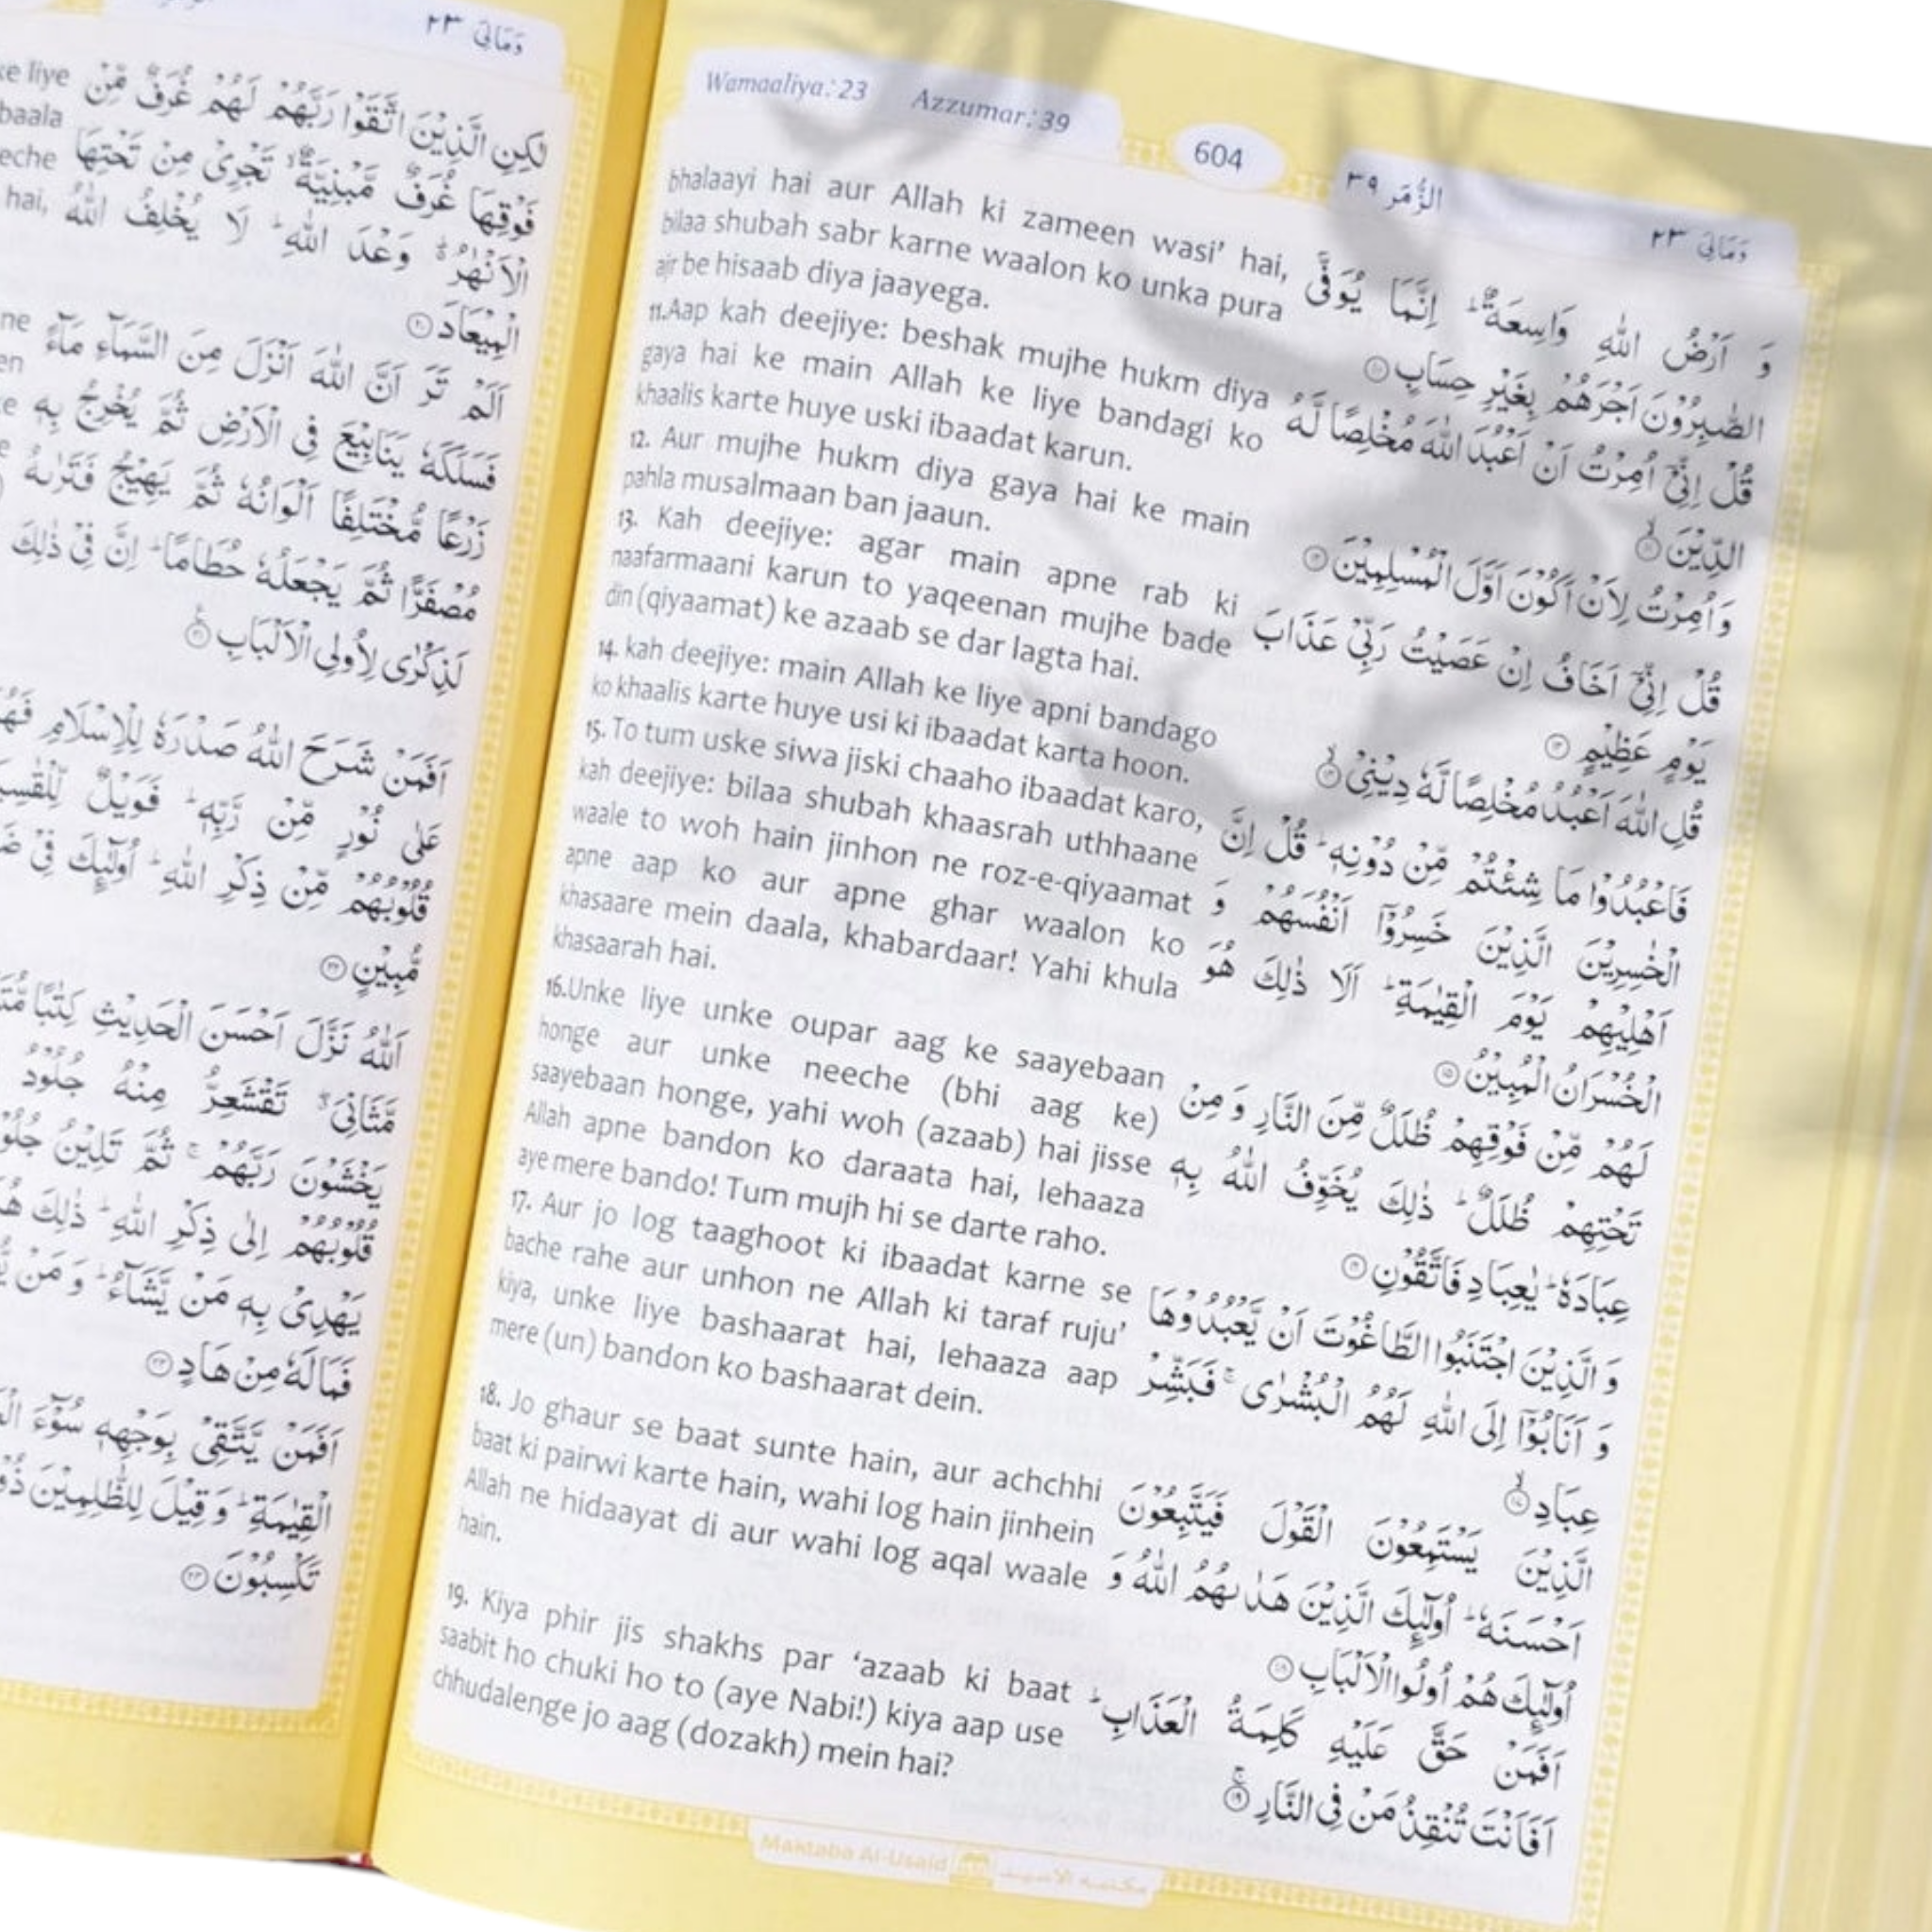 وَمَالِیَ ٢٣
ke liye
baala
eche
hai,
ne
en
لٰكِنِ الَّذِيْنَ اتَّقَوْا رَبَّهُمْ لَهُمْ غُرَفٌ مِّنْ
فَوْقِهَا غُرَفٌ مَّبْنِيَّةٌ ۙ تَجْرِيْ مِنْ تَحْتِهَا
الْاَنْهٰرُ ۬ؕ وَعْدَ اللّٰهِ ؕ لَا يُخْلِفُ اللّٰهُ
الْمِيْعَادَ ۝٢٠
اَلَمْ تَرَ اَنَّ اللّٰهَ اَنْزَلَ مِنَ السَّمَآءِ مَآءً
فَسَلَكَهٗ يَنَابِيْعَ فِي الْاَرْضِ ثُمَّ يُخْرِجُ بِهٖ
زَرْعًا مُّخْتَلِفًا اَلْوَانُهٗ ثُمَّ يَهِيْجُ فَتَرٰىهُ
مُصْفَرًّا ثُمَّ يَجْعَلُهٗ حُطَامًا ؕ اِنَّ فِيْ ذٰلِكَ
لَذِكْرٰى لِاُولِي الْاَلْبَابِ ۝٢١
اَفَمَنْ شَرَحَ اللّٰهُ صَدْرَهٗ لِلْاِسْلَامِ
عَلٰى نُوْرٍ مِّنْ رَّبِّهٖ ؕ فَوَيْلٌ
قُلُوْبُهُمْ مِّنْ ذِكْرِ اللّٰهِ ؕ اُولٰٓئِكَ فِيْ
مُّبِيْنٍ ۝٢٢
اَللّٰهُ نَزَّلَ اَحْسَنَ الْحَدِيْثِ كِتٰبًا
مَّثَانِيَ ۖ تَقْشَعِرُّ مِنْهُ جُلُوْدُ
يَخْشَوْنَ رَبَّهُمْ ۚ ثُمَّ تَلِيْنُ
قُلُوْبُهُمْ اِلٰى ذِكْرِ اللّٰهِ ؕ ذٰلِكَ
يَهْدِيْ بِهٖ مَنْ يَّشَآءُ ؕ وَمَنْ
فَمَا لَهٗ مِنْ هَادٍ ۝٢٣
اَفَمَنْ يَّتَّقِيْ بِوَجْهِهٖ سُوْٓءَ
الْقِيٰمَةِ ؕ وَقِيْلَ لِلظّٰلِمِيْنَ
تَكْسِبُوْنَ ۝٢٤
Wamaaliya:23 Azzumar:39 604 الزُّمَر ٣٩ وَمَالِیَ ٢٣
bhalaayi hai aur Allah ki zameen wasi' hai,
bilaa shubah sabr karne waalon ko unka pura
ajr be hisaab diya jaayega.
11.Aap kah deejiye: beshak mujhe hukm diya
gaya hai ke main Allah ke liye bandagi ko
khaalis karte huye uski ibaadat karun.
12. Aur mujhe hukm diya gaya hai ke main
pahla musalmaan ban jaaun.
13. Kah deejiye: agar main apne rab ki
naafarmaani karun to yaqeenan mujhe bade
din(qiyaamat) ke azaab se dar lagta hai.
14. kah deejiye: main Allah ke liye apni bandago
ko khaalis karte huye usi ki ibaadat karta hoon.
15. To tum uske siwa jiski chaaho ibaadat karo,
kah deejiye: bilaa shubah khaasrah uthhaane
waale to woh hain jinhon ne roz-e-qiyaamat
apne aap ko aur apne ghar waalon ko
khasaare mein daala, khabardaar! Yahi khula
khasaarah hai.
16.Unke liye unke oupar aag ke saayebaan
honge aur unke neeche (bhi aag ke)
saayebaan honge, yahi woh (azaab) hai jisse
Allah apne bandon ko daraata hai, lehaaza
aye mere bando! Tum mujh hi se darte raho.
17. Aur jo log taaghoot ki ibaadat karne se
bache rahe aur unhon ne Allah ki taraf ruju'
kiya, unke liye bashaarat hai, lehaaza aap
mere (un) bandon ko bashaarat dein.
18. Jo ghaur se baat sunte hain, aur achchhi
baat ki pairwi karte hain, wahi log hain jinhein
Allah ne hidaayat di aur wahi log aqal waale
hain.
19. Kiya phir jis shakhs par 'azaab ki baat
saabit ho chuki ho to (aye Nabi!) kiya aap use
chhudalenge jo aag (dozakh) mein hai?
وَ اَرْضُ اللّٰهِ وَاسِعَةٌ ؕ اِنَّمَا يُوَفَّى
الصّٰبِرُوْنَ اَجْرَهُمْ بِغَيْرِ حِسَابٍ ۝١٠
قُلْ اِنِّيْٓ اُمِرْتُ اَنْ اَعْبُدَ اللّٰهَ مُخْلِصًا لَّهُ
الدِّيْنَ ۙ۝١١
وَاُمِرْتُ لِاَنْ اَكُوْنَ اَوَّلَ الْمُسْلِمِيْنَ ۝١٢
قُلْ اِنِّيْٓ اَخَافُ اِنْ عَصَيْتُ رَبِّيْ عَذَابَ
يَوْمٍ عَظِيْمٍ ۝١٣
قُلِ اللّٰهَ اَعْبُدُ مُخْلِصًا لَّهٗ دِيْنِيْ ۙ۝١٤
فَاعْبُدُوْا مَا شِئْتُمْ مِّنْ دُوْنِهٖ ؕ قُلْ اِنَّ
الْخٰسِرِيْنَ الَّذِيْنَ خَسِرُوْٓا اَنْفُسَهُمْ وَ
اَهْلِيْهِمْ يَوْمَ الْقِيٰمَةِ ؕ اَلَا ذٰلِكَ هُوَ
الْخُسْرَانُ الْمُبِيْنُ ۝١٥
لَهُمْ مِّنْ فَوْقِهِمْ ظُلَلٌ مِّنَ النَّارِ وَ مِنْ
تَحْتِهِمْ ظُلَلٌ ؕ ذٰلِكَ يُخَوِّفُ اللّٰهُ بِهٖ
عِبَادَهٗ ؕ يٰعِبَادِ فَاتَّقُوْنِ ۝١٦
وَ الَّذِيْنَ اجْتَنَبُوا الطَّاغُوْتَ اَنْ يَّعْبُدُوْهَا
وَ اَنَابُوْٓا اِلَى اللّٰهِ لَهُمُ الْبُشْرٰى ۚ فَبَشِّرْ
عِبَادِ ۙ۝١٧
الَّذِيْنَ يَسْتَمِعُوْنَ الْقَوْلَ فَيَتَّبِعُوْنَ
اَحْسَنَهٗ ؕ اُولٰٓئِكَ الَّذِيْنَ هَدٰىهُمُ اللّٰهُ وَ
اُولٰٓئِكَ هُمْ اُولُوا الْاَلْبَابِ ۝١٨
اَفَمَنْ حَقَّ عَلَيْهِ كَلِمَةُ الْعَذَابِ ؕ
اَفَاَنْتَ تُنْقِذُ مَنْ فِي النَّارِ ۚ۝١٩
Maktaba Al-Usaid